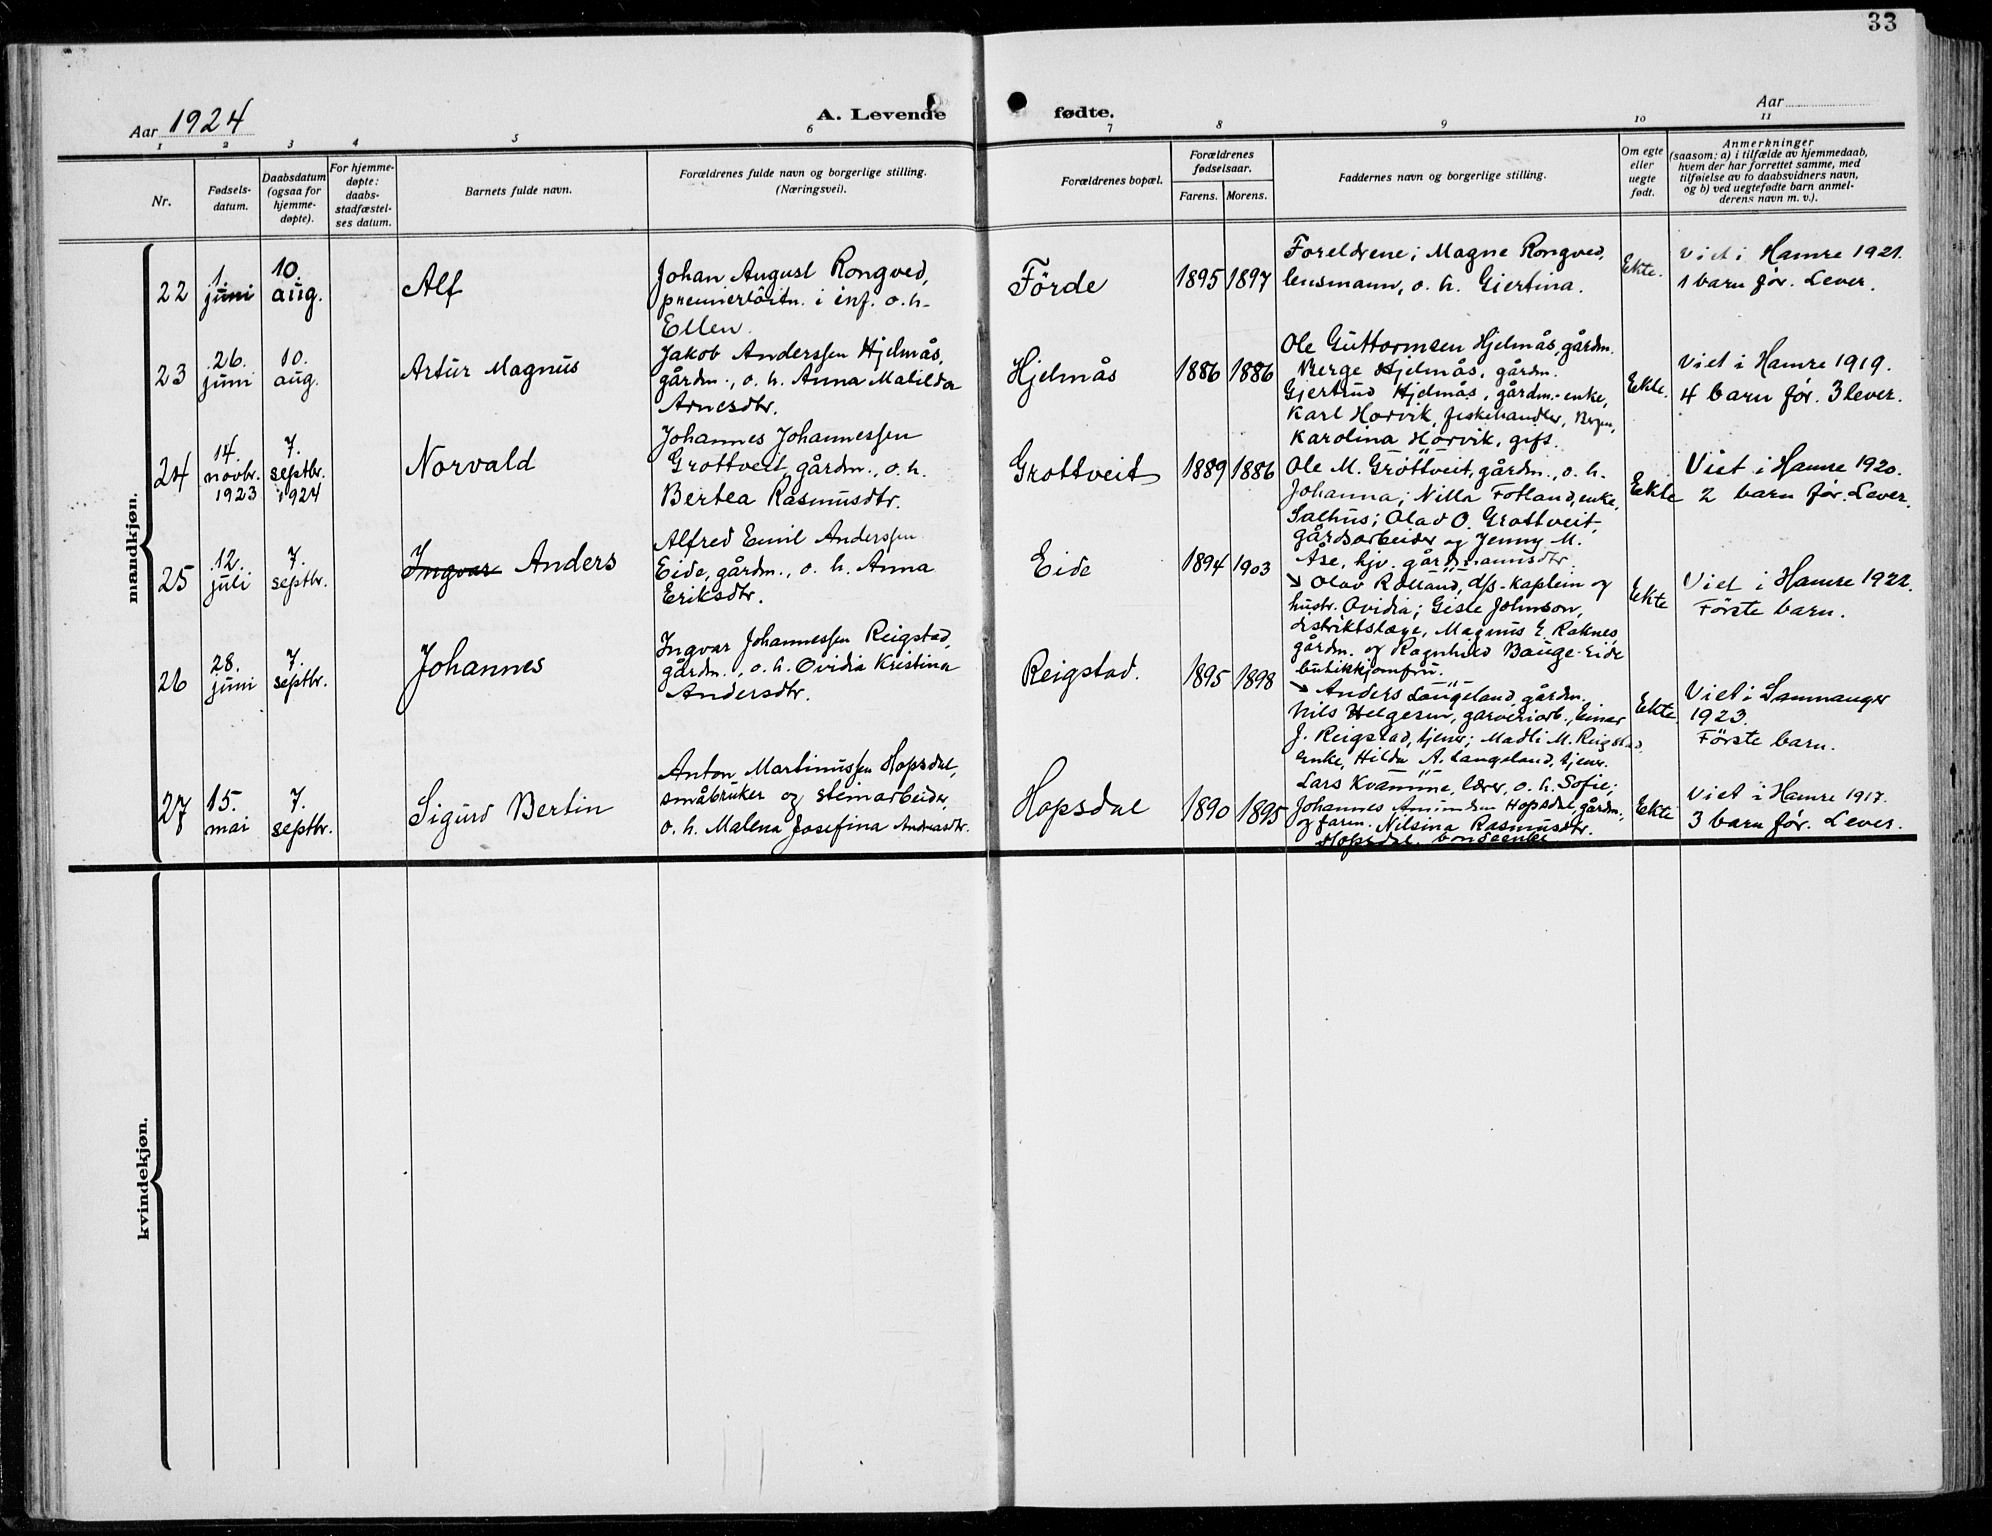 33
Aar 1924
A. Levende fødte.
Aar
1 2 3 4 5 6 7 8 9 10 11
Nr.
Fødsels-
datum.
Daabsdatum
(ogsaa for
hjemme-
døpte).
For hjemme-
døpte:
daabs-
stadfæstel-
ses datum.
Barnets fulde navn.
Forældrenes fulde navn og borgerlige stilling.
(Næringsvei).
Forældrenes bopæl.
Forældrenes
fødselsaar.
Farens. Morens.
Faddernes navn og borgerlige stilling.
Om egte
eller
uegte
født.
Anmerkninger
(saasom: a) i tilfælde av hjemmedaab,
hvem der har forrettet samme, med
tilføielse av to daabsvidners navn,
og b) ved uegtefødte barn anmel-
derens navn m. v.).
mandkjøn.
22
1
juni
10.
aug.
Alf
Johan August Rongved,
premierlöitn. i inf. o. h.
Ellen
Förde
1895 1897
Foreldrene; Magne Rongved,
lensmann, o. h. Gjertina.
Ekte.
Viet i Hamre 1921.
1 barn før. Lever.
23
26.
juni
10.
aug.
Artur Magnus
Jakob Anderssen Hjelmås,
gårdm., o. h. Anna Matilda
Arnesdtr.
Hjelmås
1886 1886
Ole Guttormsen Hjelmås, gårdm.
Berge Hjelmås, gårdm.
Gjertrud Hjelmås, gårdm.-enke,
Karl Horvik, fiskehandler, Bergen,
Karolina Horvik, gift.
Ekte.
Viet i Hamre 1919.
4 barn før. 3 lever.
24
14.
novbr.
1923
7.
septbr.
1924
Norvald
Johannes Johannessen
Grottveit, gårdm., o. h.
Bertea Rasmusdtr.
Grottveit
1889 1886
Ole M. Gröttveit, gårdm., o. h.
Johanna; Nilla Fotland, enke,
Salhus; Olav O. Grottveit,
gårdsarbeider og Jenny M.
Åse, hjv. gårdmannsdtr.
Ekte
Viet i Hamre 1920.
2 barn før. Lever.
25
12.
juli
7.
septbr.
Ingvar Anders
Alfred Emil Anderssen
Eide, gårdm., o. h. Anna
Eriksdtr.
Eide
1894 1903
Olav Rolland, dps.-kaplein og
hustr. Ovidia; Gisle Johnson,
distriktslæge, Magnus E. Raknes,
gårdm. og Ragnhild Bauge-Eide
butikkjomfru.
Ekte
Viet i Hamre 1922.
Förste barn.
26
28.
juni
7.
septbr.
Johannes
Ingvar Johannessen Reigstad,
gårdm., o. h. Ovidia Kristina
Andersdtr.
Reigstad.
1895 1898
Anders Langeland, gårdm.
Nils Helgesen, garveriarb., Einar
J. Reigstad, tjener; Madli M. Reigstad,
enke, Hilda A. Langeland, tjener.
Ekte
Viet i Samnanger
1923.
Förste barn.
27
15.
mai
7.
septbr.
Sigurd Bertin
Anton Martinussen Hopsdal,
småbruker og steinarbeider,
o. h. Malena Josefina Andreasdtr.
Hopsdal
1890 1895
Lars Kvamme, lærer, o. h. Sofie;
Johannes Hopsdal, gårdm.,
og faren. Nilsina Rasmusdtr.
Hopsdal, bondeenke
Ekte
Viet i Hamre 1917.
3 barn før. Lever.
kvindekjøn.